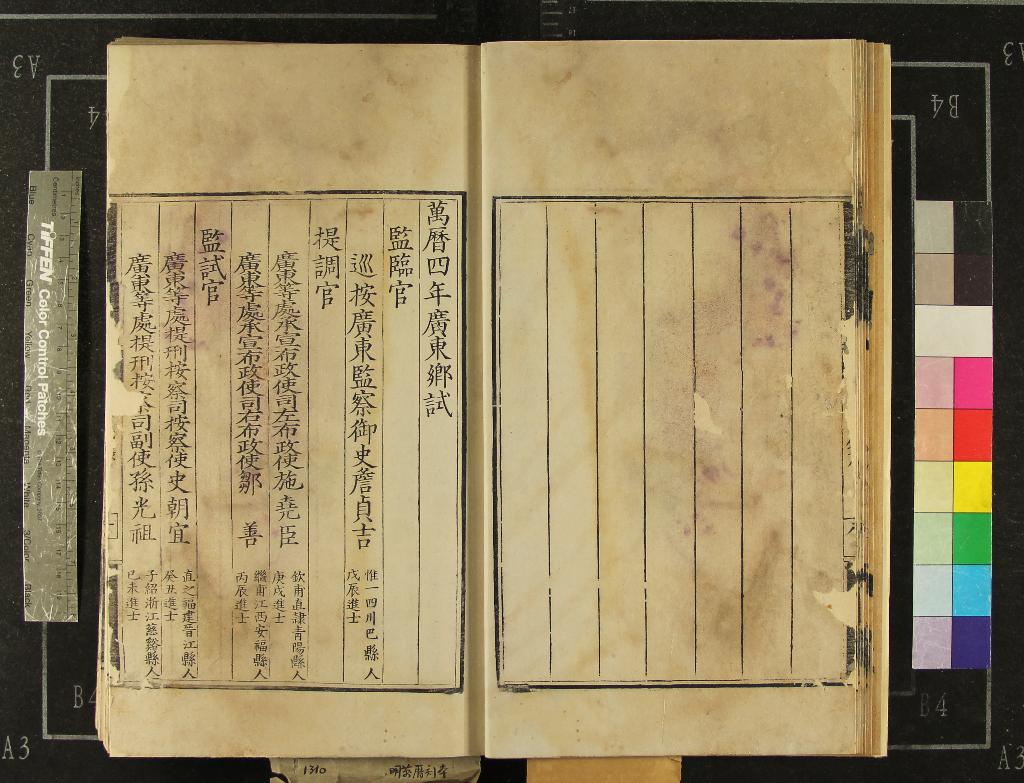 萬曆四年廣東鄉試
監臨官
巡按廣東監察御史詹貞吉
惟一四川巴縣人
戊辰進士
提調官
廣東等處承宣布政使司左布政使施堯臣
欽甫直隸青陽縣人
庚戌進士
廣東等處承宣布政使司右布政使鄒 善
繼甫江西安福縣人
丙辰進士
監試官
廣東等處提刑按察司按察使史朝宜
直之福建晉江縣人
癸丑進士
廣東等處提刑按察司副使孫光祖
子紹浙江慈谿縣人
己未進士
1310
明萬曆刊本
TIFFEN Color Control Patches
Centimetres
Blue
Cyan
Green
Yellow
Red
Magenta
White
3/Color
Black
A3
B4
A3
B4
A3
B4
A3
B4